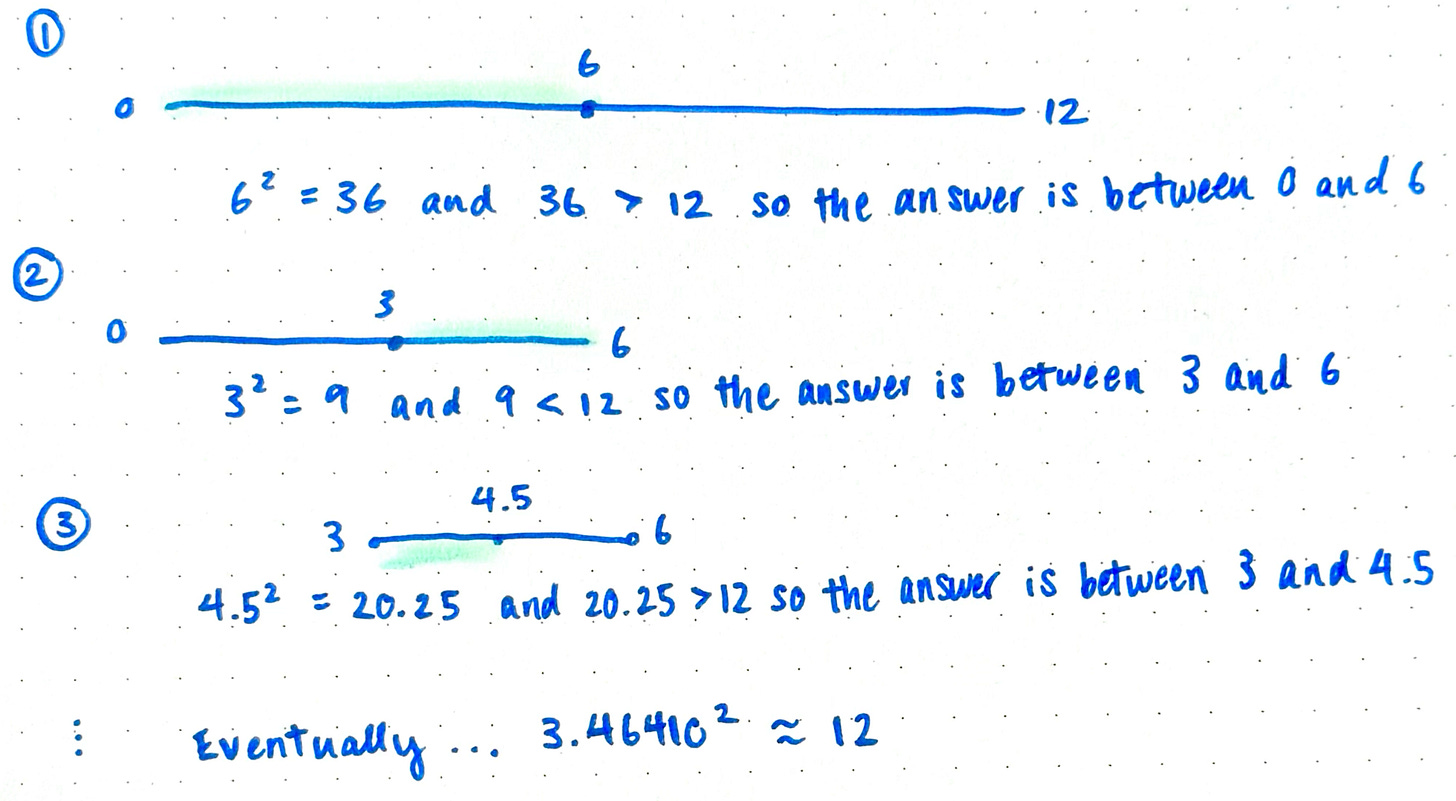 ①
6
0 12
6² = 36 and 36 > 12 so the answer is between 0 and 6
②
3
0 6
3² = 9 and 9 < 12 so the answer is between 3 and 6
③
4.5
3 6
4.5² = 20.25 and 20.25 > 12 so the answer is between 3 and 4.5
⋮ Eventually ... 3.46410² ≈ 12